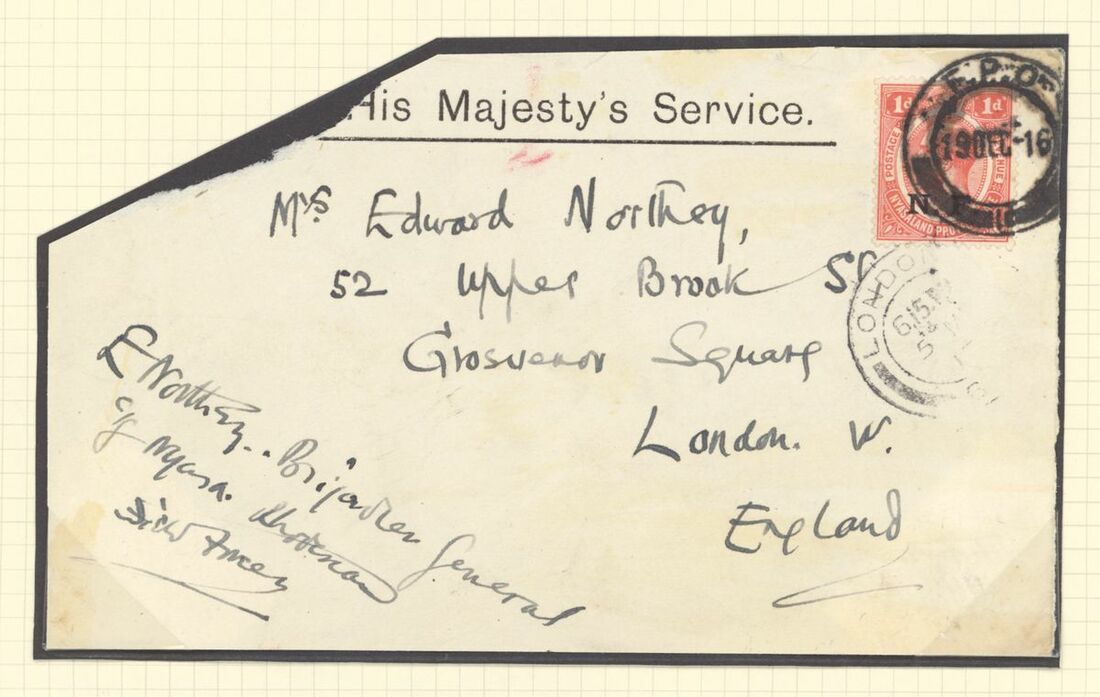 His Majesty's Service.
Mrs Edward Northey,
52 Upper Brook St
Grosvenor Square
London. W.
England
E Northey.. Brigadier General
c/o Nyasa. Rhodesian
Field Force
1d 1d
POSTAGE
NYASALAND
N. F.
F.P.O
19 DEC-16
LONDON
6.15 P
5